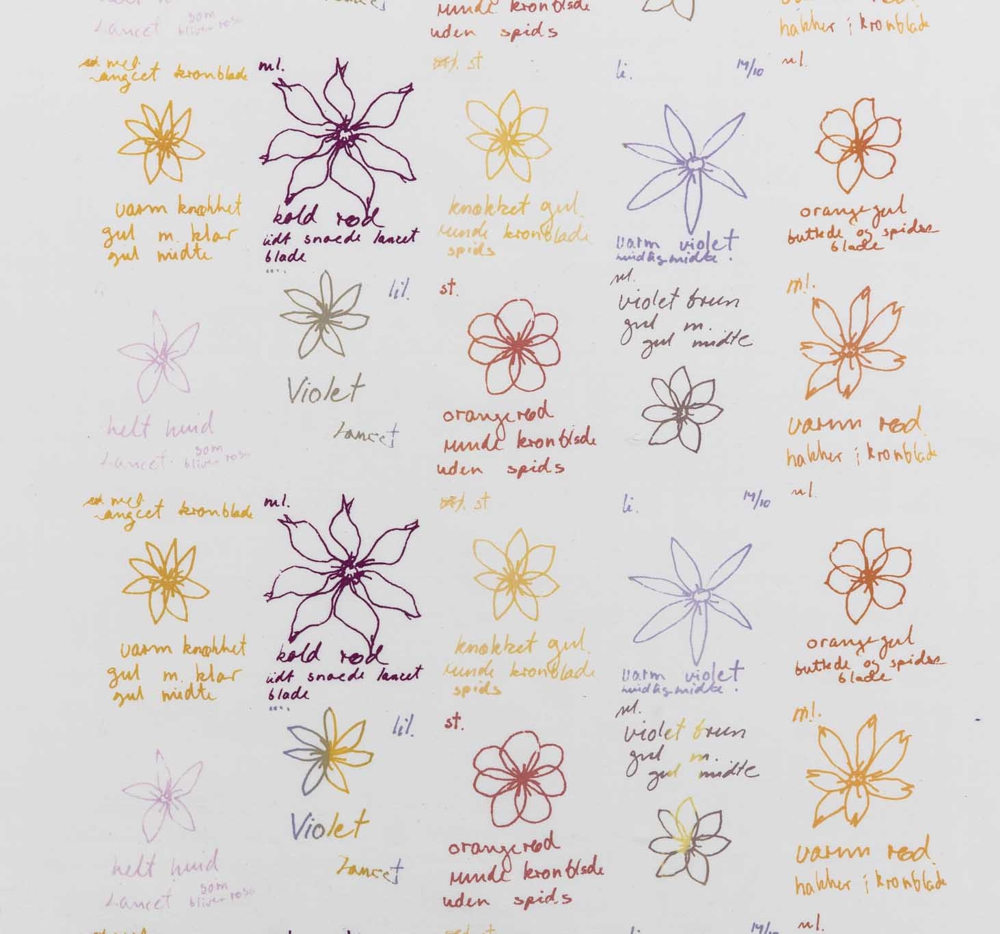 runde kronblade
Lancet
uden spids
hakker i kronblade
som
bliver rosa
ml.
st
li.
14/10
angcet kronblade
varm knækket
gul m. klar
gul midte
kold rød
lidt snoede lancet
blade
knækket gul
runde kronblade
spids
varm violet
orangegul
buttede og spidse
blade
lil.
st.
violet brun
gul m.
gul midte
ml.
Violet
Lancet
helt hvid
Lancet som
bliver rosa
orangerød
runde kronblade
uden spids
varm rød
hakker i kronblade
angcet kronblade
ml.
st
li.
14/10
varm knækket
gul m. klar
gul midte
kold rød
lidt snoede lancet
blade
knækket gul
runde kronblade
spids
varm violet
orangegul
buttede og spidse
blade
lil.
st.
violet brun
gul m.
gul midte
ml.
Violet
Lancet
helt hvid
Lancet som
bliver rosa
orangerød
runde kronblade
uden spids
varm rød
hakker i kronblade
14/10